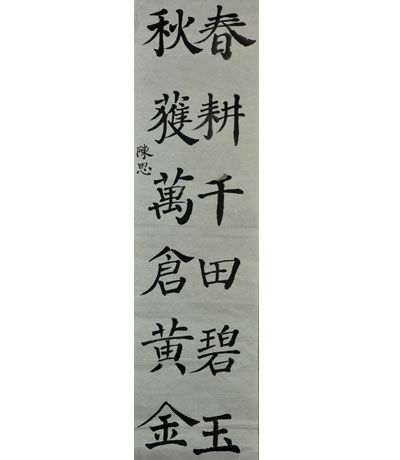 春耕千田碧玉
秋獲萬倉黄金
陳思